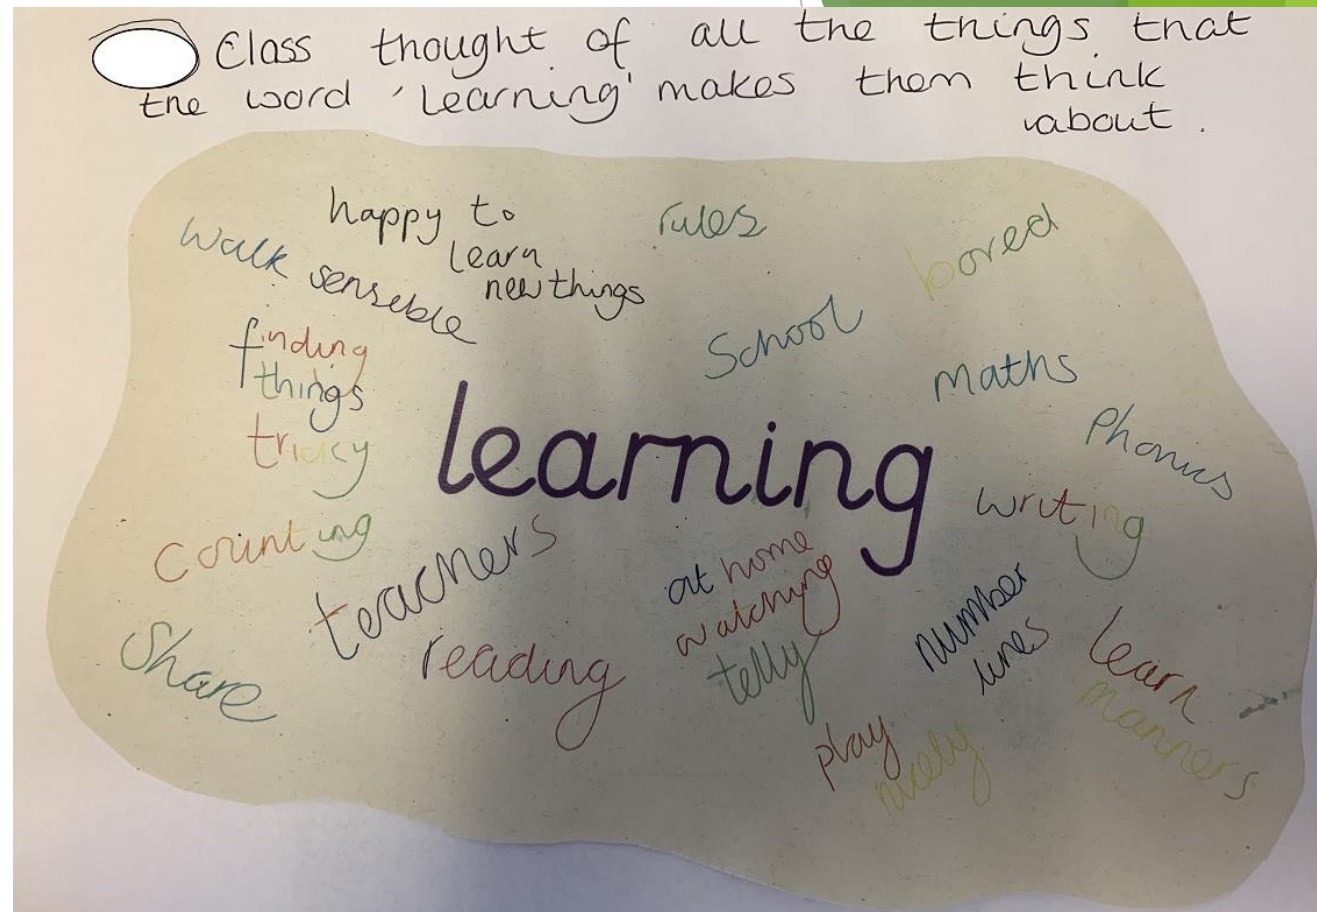 Class thought of all the things that
the word 'Learning' makes them think
about.
happy to
learn
new things
walk sensible
rules
bored
School
finding
things
tricky
maths
Phonics
learning
writing
counting
teachers
at home
watching
telly
number
lines
learn
manners
Share
reading
play
nicely